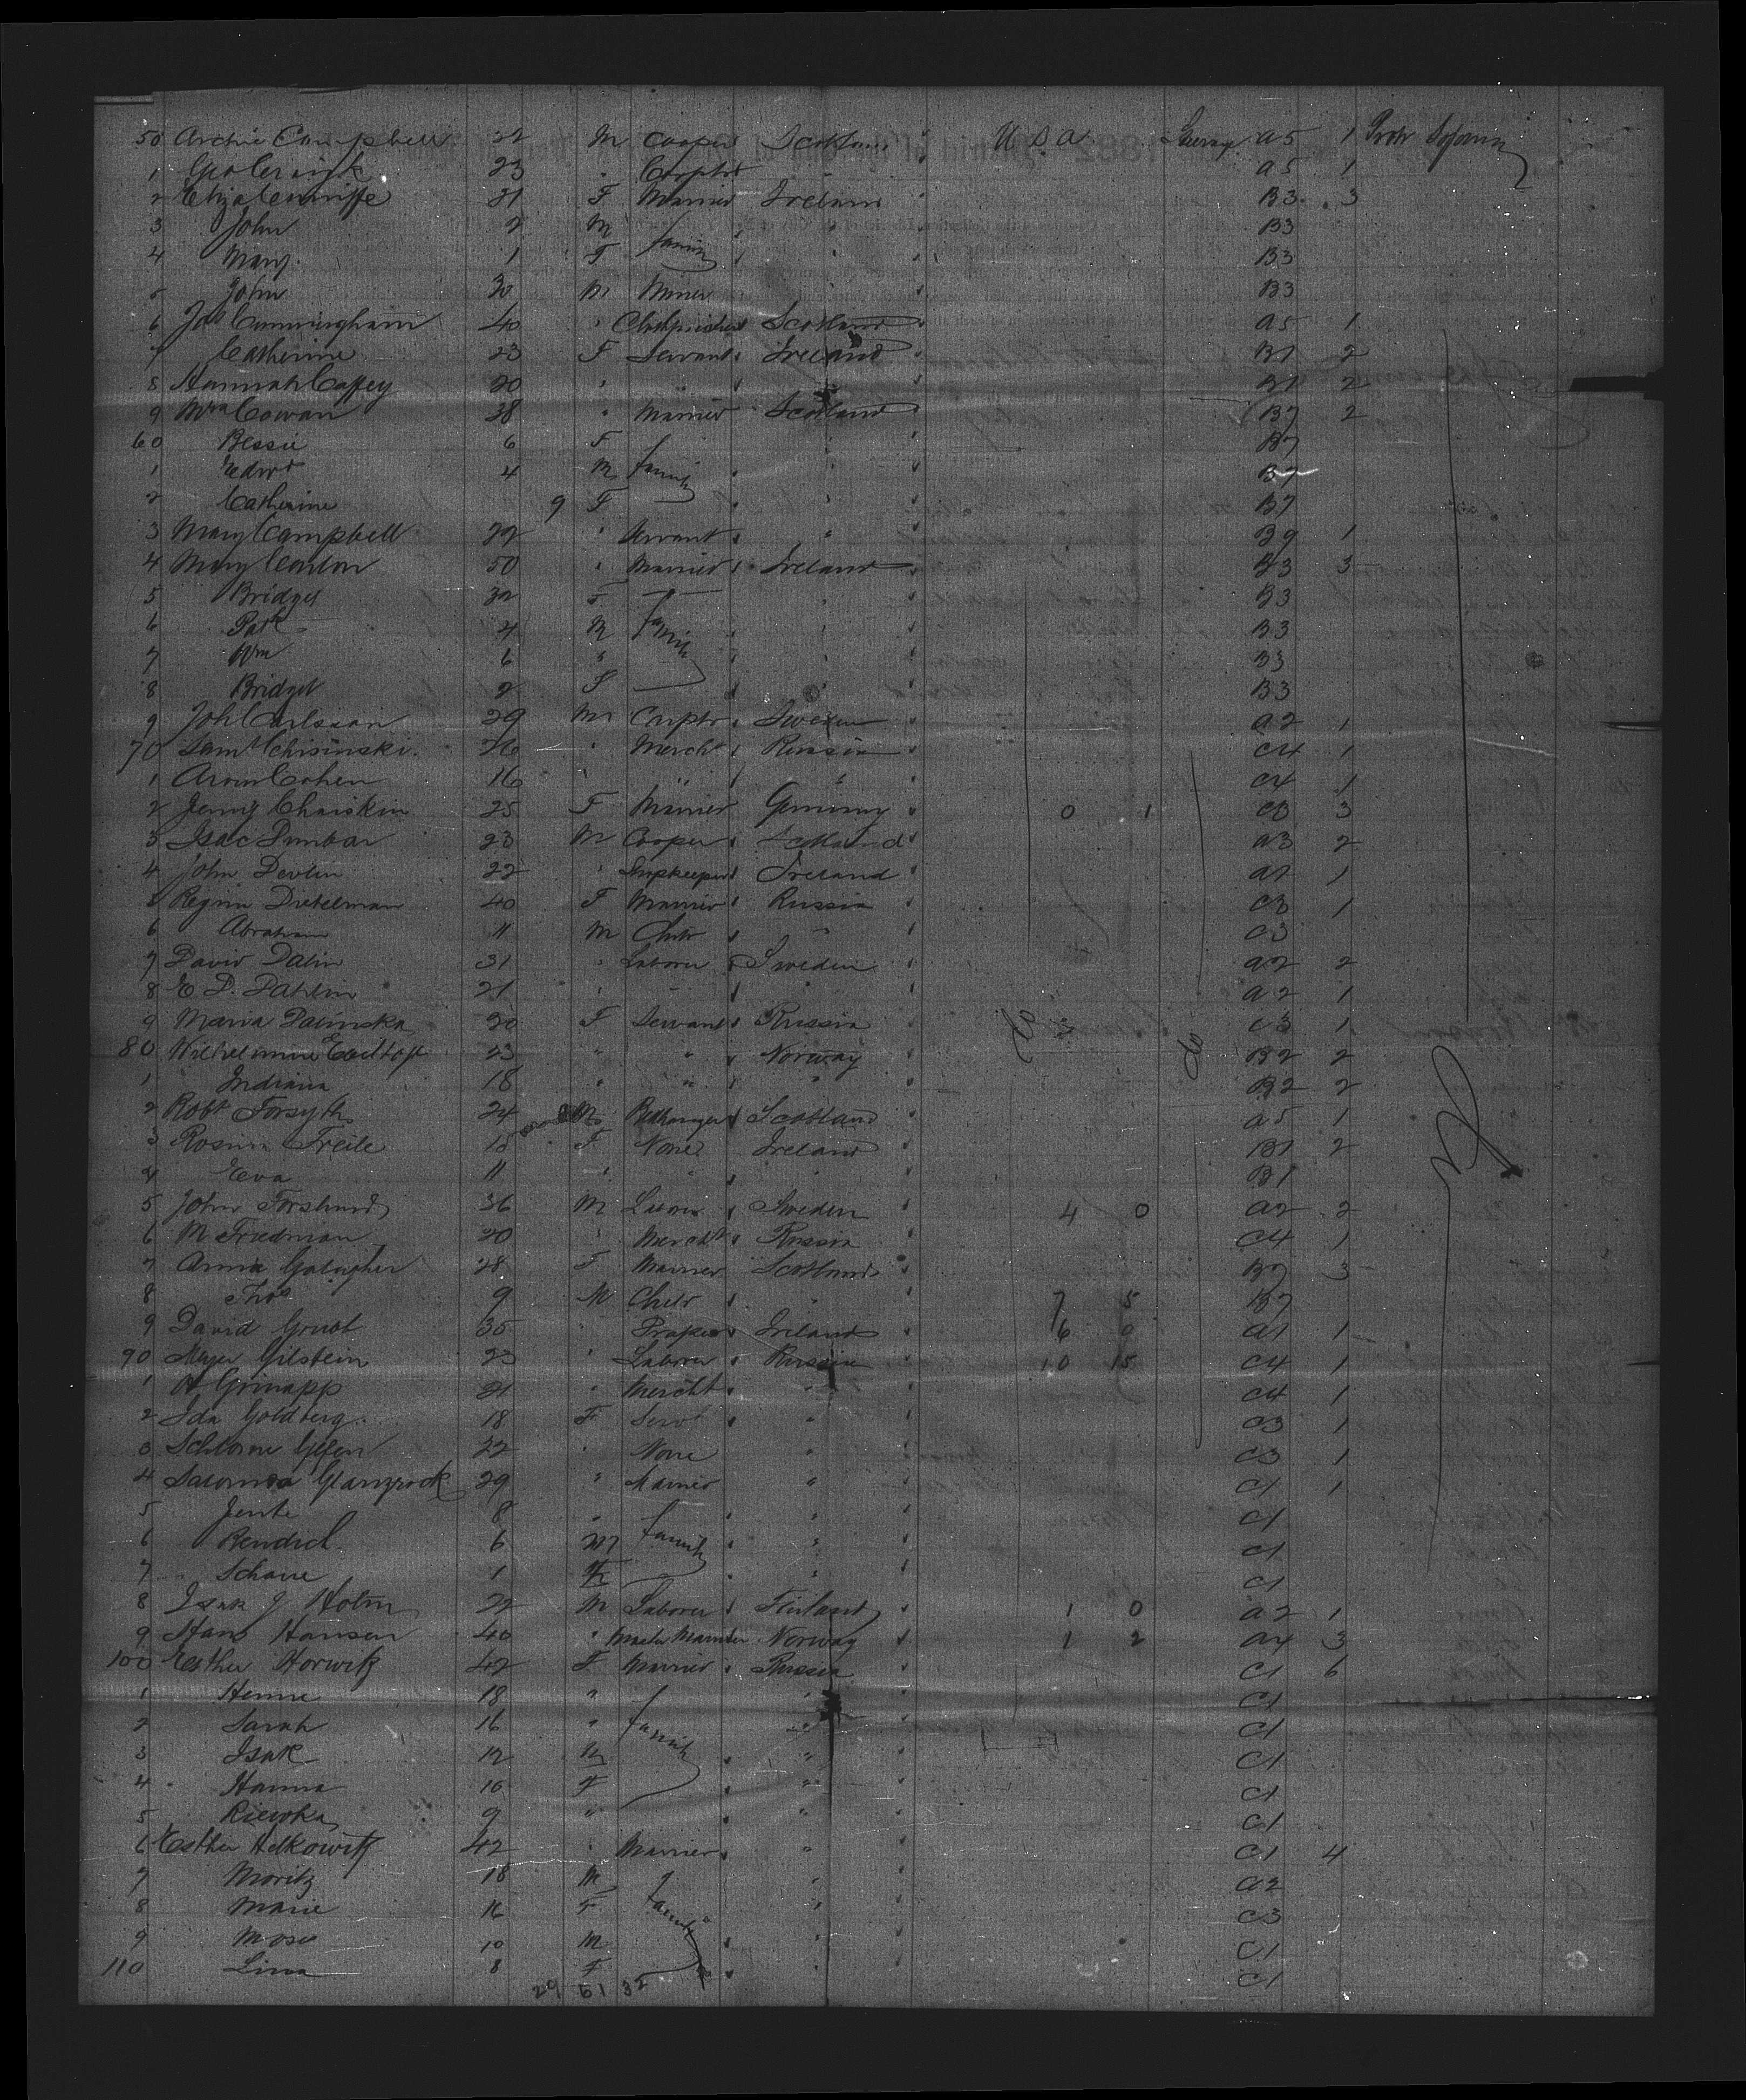 50 Archie Campbell 22 M Cooper Scotland " U S A Steerag A5 1 Protr Sojourn
1 Geo 23 " Carptr " " A5 1
2 Eliza Cunniffe 21 F Married Ireland " B3 3
3 John 2 M family " " B3
4 Mary 1 F " " B3
5 John 30 M Miner " " B3
6 Jas Cunningham 40 " Scotland " A5 1
7 Catherine 23 F Servant " Ireland " B1 2
8 Hannah Caffey 20 " " " " B1 2
9 Mrs Cowan 38 " Married Scotland " B7 2
60 Bessie 6 F family " " B7
1 Edwd 4 M " " B7
2 Catherine 9 F " " B7
3 Mary Campbell 22 " Servant " " B9 1
4 Mary Conlon 50 " Married " Ireland " B3 3
5 Bridget 32 F family " " B3
6 Patk 4 M " " B3
7 Wm 6 " " " B3
8 Bridget 2 F " " B3
9 Joh Carlsson 29 M Carptr " Sweden " A2 1
70 Saml Chisinski 26 " Mercht " Russia " C4 1
1 Aron Cohen 16 " " " " C4 1
2 Jenny Chaiskin 25 F Married Germany " 0 1 C3 3
3 Isac Dunbar 23 M Cooper " Scotland " A3 2
4 John Devlin 22 " Shopkeeper " Ireland " A1 1
5 Regina Dietelman 40 F Married " Russia " C3 1
6 Abraham 11 M Child " " " C3
7 David Dalin 31 " Laborer " Sweden " A2 2
8 E D. Dahlin 21 " " " " A2 1
9 Maria Dalinska 20 F Servant " Russia " do C3 1
80 Wilhelmine 23 " " " Norway " do B2 2
1 Indiana 18 " " " " B2 2
2 Robt Forsyth 24 M " Scotland A5 1
3 Rosina Freile 15 F None Ireland B1 2
4 Eva 11 " " " B1
5 John Forslund 36 M Laborer " Sweden " 4 0 A2 2
6 M Friedman 20 " Mercht " Russia " C4 1
7 Annie Galagher 28 F Married Scotland " B7 3
8 Thos 9 M Child " " 7 5 B7
9 David Grant 35 " Draper " Ireland " 6 0 A1 1
90 Meyer Gilstein 23 " Laborer " Russia " 10 15 C4 1
1 A Grinapp 21 " Mercht " " C4 1
2 Ida Goldberg 18 F Servt " " C3 1
3 Schlome Gefen 22 " None " C3 1
4 Salomea Glanzrock 29 " Married " C1 1
5 Jente 8 " family " " C1
6 Rendsch 6 M " " C1
7 Schane 1 F " " C1
8 Isak J Holm 22 M Laborer " Finland " 1 0 A2 1
9 Hans Hansen 40 " Master Mariner Norway " 1 2 A4 3
100 Esther Horwitz 42 F Married " Russia " C1 6
1 Henne 18 " family " C1
2 Sarah 16 " " C1
3 Isak 12 M " " C1
4 Hanna 10 F " " C1
5 Riewka 9 " " " C1
6 Esther Helkowitz 42 " Married " " C1 4
7 Moritz 18 M family " A2
8 Marie 16 F " C3
9 Moses 10 M " " C1
110 Lina 8 F " " C1
29 61 32